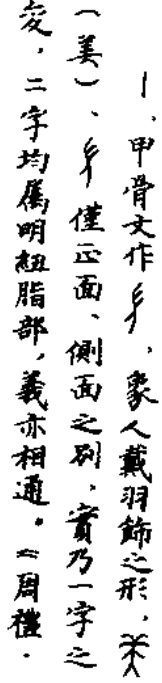 一、甲骨文作，象人戴羽飾之形，
（美）、僅正面、側面之别，實乃一字之
变，二字均属明紐脂部，義亦相通。《周禮·